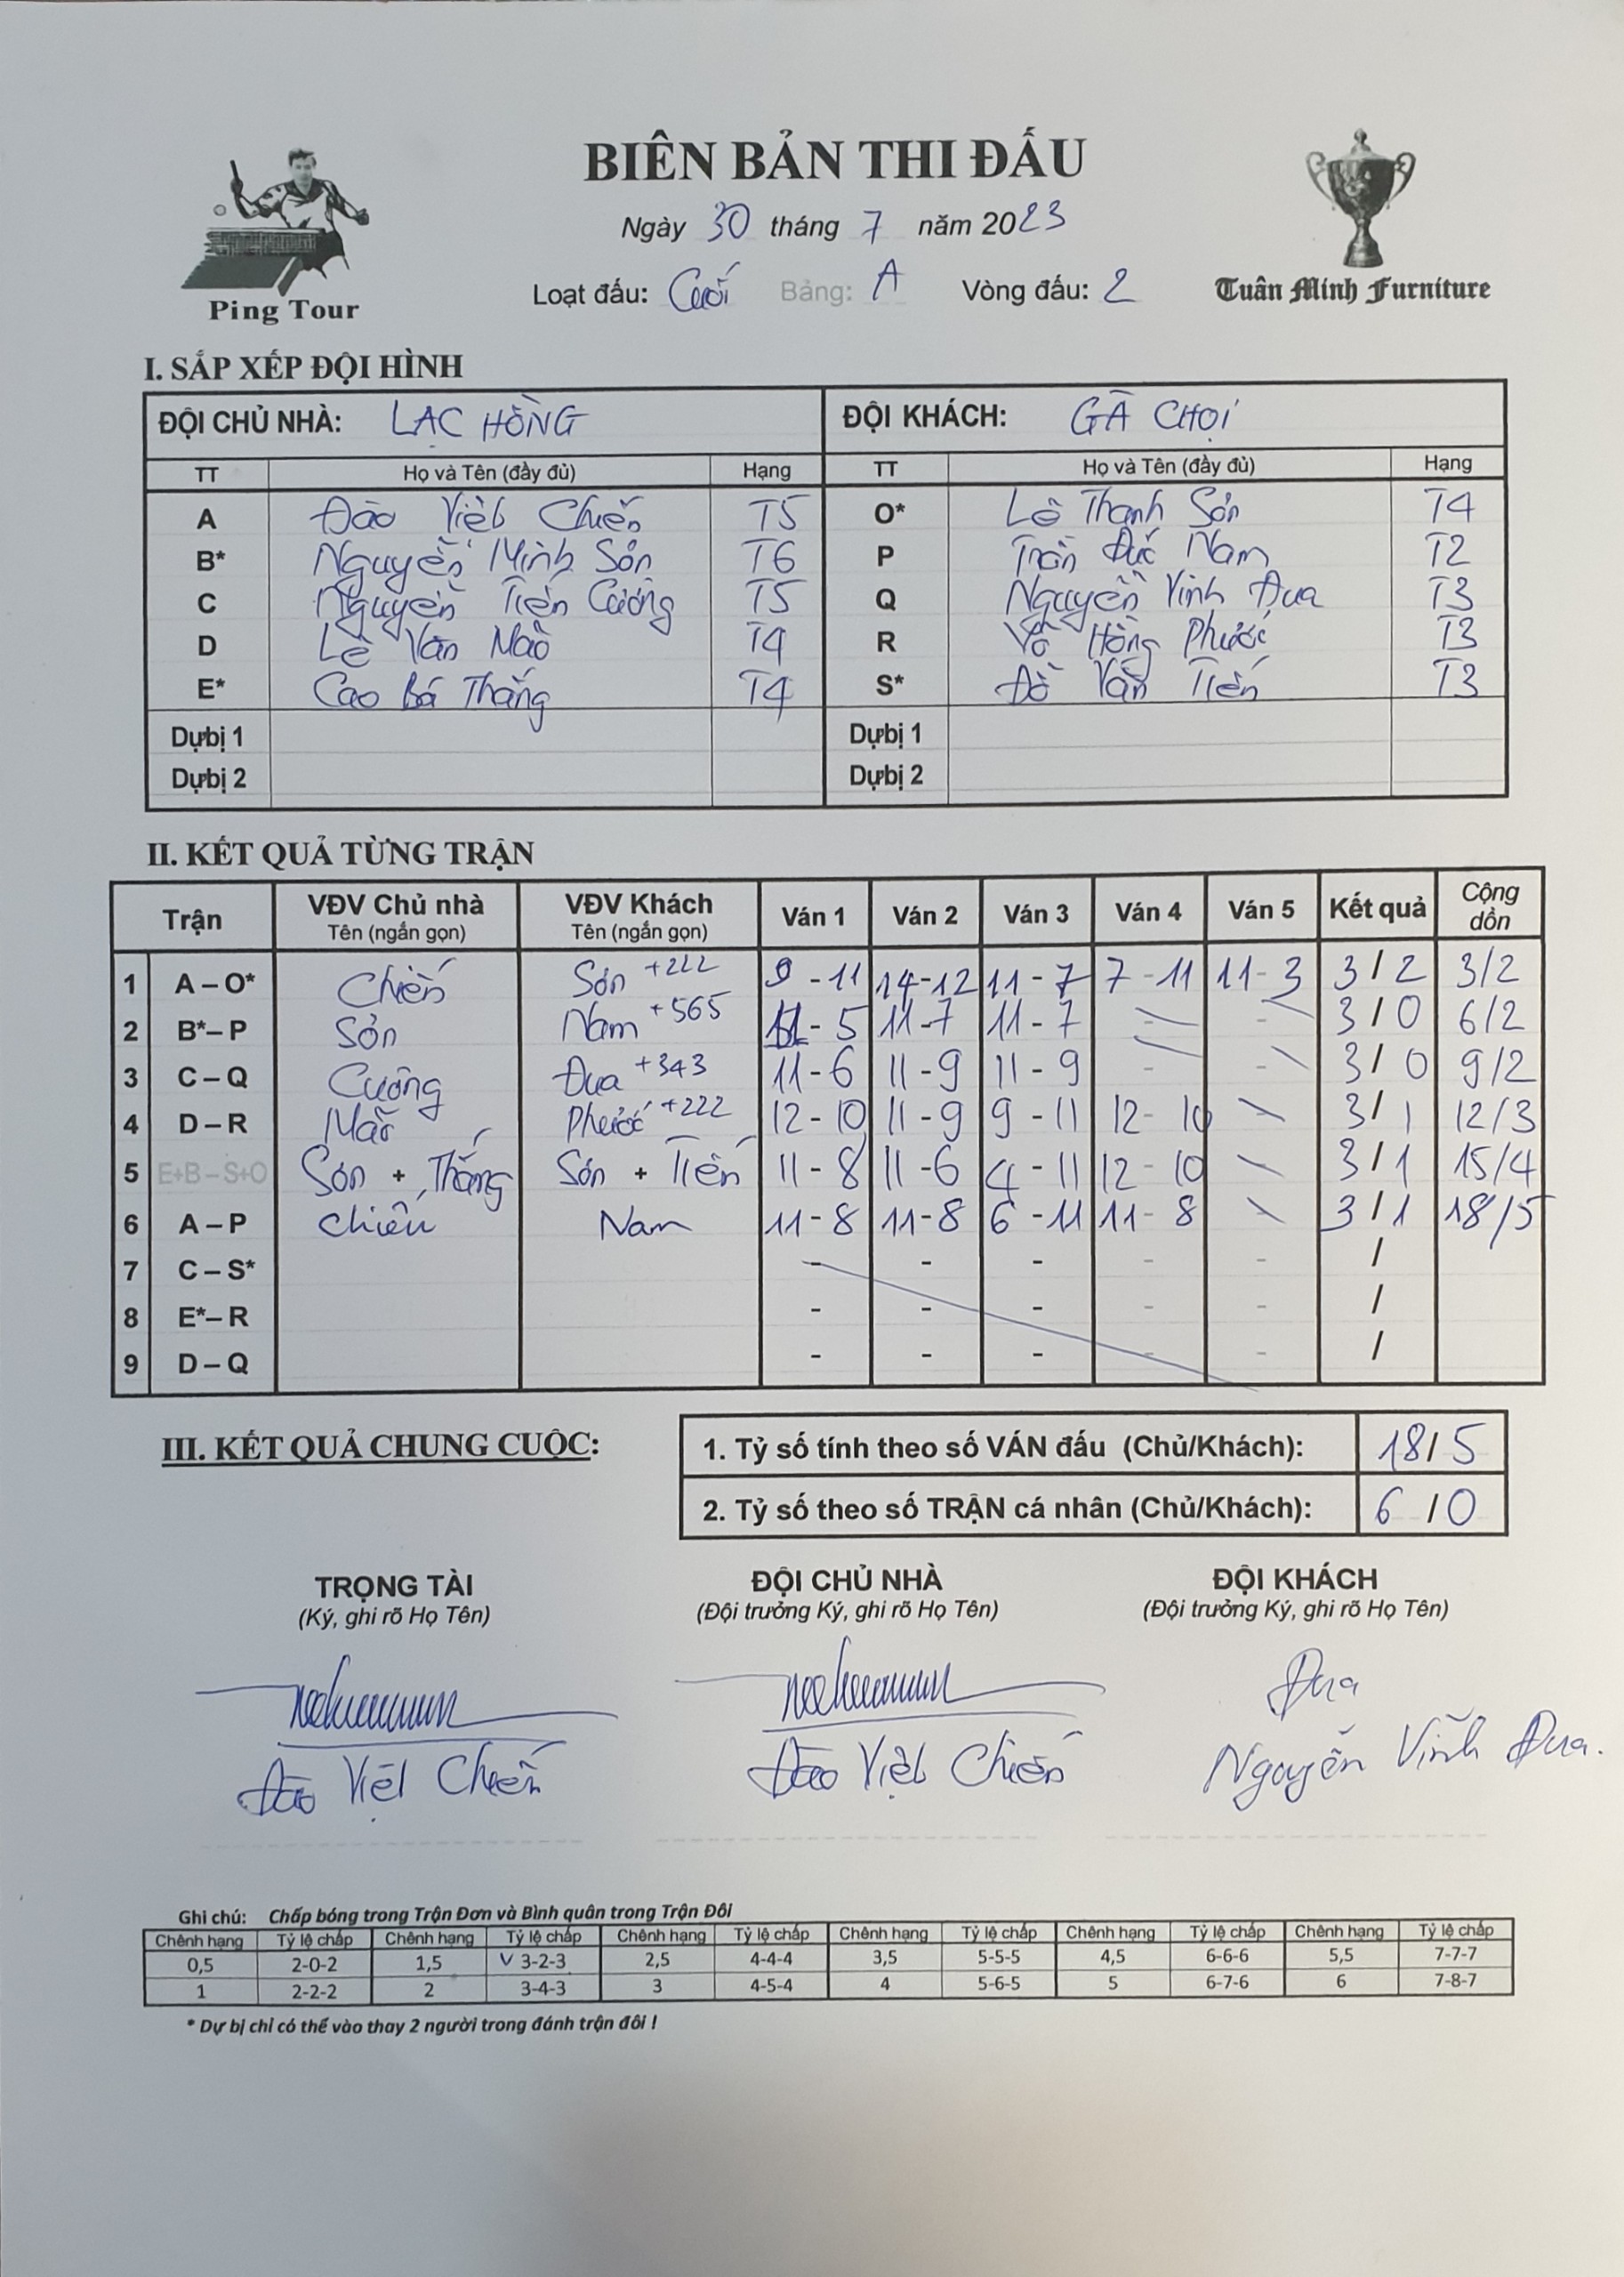 BIÊN BẢN THI ĐẤU
Ngày 30 tháng 7 năm 2023
Loạt đấu: Cuối Bảng: A Vòng đấu: 2
Ping Tour
Tuân Minh Furniture
I. SẮP XẾP ĐỘI HÌNH
ĐỘI CHỦ NHÀ: LẠC HỒNG ĐỘI KHÁCH: GÀ CHỌI
TT Họ và Tên (đầy đủ) Hạng TT Họ và Tên (đầy đủ) Hạng
A Đào Việt Chiến T5 O* Lê Thanh Sơn T4
B* Nguyễn Minh Sơn T6 P Trần Đức Nam T2
C Nguyễn Tiến Cường T5 Q Nguyễn Vinh Đua T3
D Lê Văn Mão T4 R Võ Hồng Phước T3
E* Cao Bá Thắng T4 S* Đỗ Văn Tiến T3
Dự bị 1 Dự bị 1
Dự bị 2 Dự bị 2
II. KẾT QUẢ TỪNG TRẬN
Trận VĐV Chủ nhà Tên (ngắn gọn) VĐV Khách Tên (ngắn gọn) Ván 1 Ván 2 Ván 3 Ván 4 Ván 5 Kết quả Cộng dồn
1 A – O* Chiến Sơn +222 9 - 11 14-12 11 - 7 7 - 11 11- 3 3 / 2 3/2
2 B*– P Sơn Nam +565 11- 5 11-7 11 - 7 - - 3 / 0 6/2
3 C – Q Cường Đua +343 11- 6 11 - 9 11 - 9 - - 3/ 0 9/2
4 D – R Mão Phước +222 12- 10 11 - 9 9 - 11 12- 10 3/ 1 12/3
5 E+B – S+O Sơn + Thắng Sơn + Tiến 11 - 8 11 -6 4 - 11 12 - 10 3/1 15/4
6 A – P Chiến Nam 11- 8 11-8 6 -11 11- 8 3 / 1 18/5
7 C – S* - - - - - /
8 E*– R - - - - - /
9 D – Q - - - - - /
III. KẾT QUẢ CHUNG CUỘC:
1. Tỷ số tính theo số VÁN đấu (Chủ/Khách): 18/ 5
2. Tỷ số theo số TRẬN cá nhân (Chủ/Khách): 6 /0
TRỌNG TÀI ĐỘI CHỦ NHÀ ĐỘI KHÁCH
(Ký, ghi rõ Họ Tên) (Đội trưởng Ký, ghi rõ Họ Tên) (Đội trưởng Ký, ghi rõ Họ Tên)
Đua
Đào Việt Chiến Đào Việt Chiến Nguyễn Vĩnh Đua.
Ghi chú: Chấp bóng trong Trận Đơn và Bình quân trong Trận Đôi
Chênh hạng Tỷ lệ chấp Chênh hạng Tỷ lệ chấp Chênh hạng Tỷ lệ chấp Chênh hạng Tỷ lệ chấp Chênh hạng Tỷ lệ chấp Chênh hạng Tỷ lệ chấp
0,5 2-0-2 1,5 3-2-3 2,5 4-4-4 3,5 5-5-5 4,5 6-6-6 5,5 7-7-7
1 2-2-2 2 3-4-3 3 4-5-4 4 5-6-5 5 6-7-6 6 7-8-7
* Dự bị chỉ có thể vào thay 2 người trong đánh trận đôi !